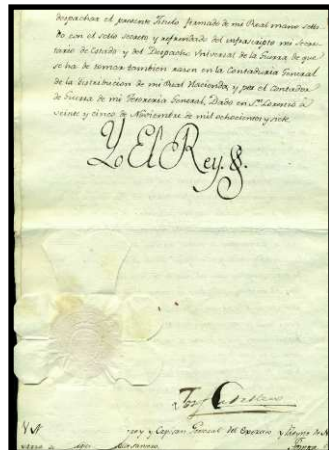 despachar el presente Titulo firmado de mi Real mano sella
do con el sello secreto y refrendado del infrascripto mi Secre
tario de Estado y del Despacho Universal de la Guerra de que
se ha de tomar tambien razon en la Contaduria General
de la distribucion de mi Real Hacienda, y por el Contador
de Guerra de mi Tesoreria General, Dado en Sn. Lorenzo à
veinte y cinco de Noviembre de mil ochocientos y siete
Yo El Rey.
y Capitan General del Exercito y Reyno de